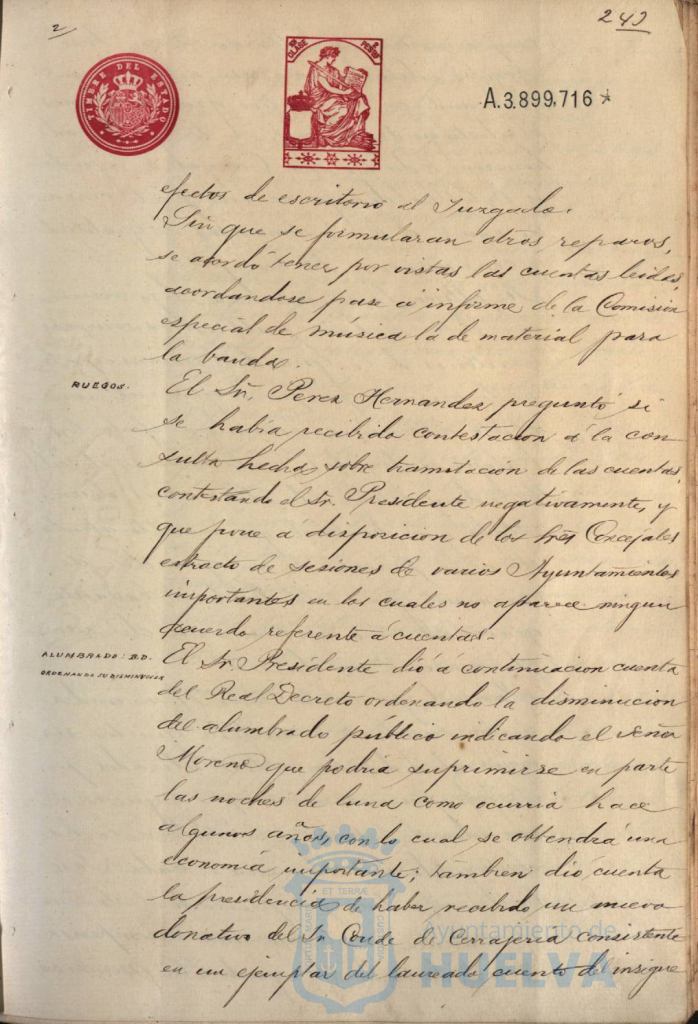 2
243
TIMBRE DEL ESTADO
CLASE
A.3.899,716*
efectos de escritorio al Juzgado.
Sin que se formularan otros reparos,
se acordó tener por vistas las cuentas leidas,
acordandose pase a informe de la Comisión
especial de música la de material para
la banda.
RUEGOS.
El Sr. Perez Hernandez preguntó si
se habia recibido contestacion á la con
sulta hecha sobre tramitación de las cuentas,
contestando el Sr. Presidente negativamente, y
que pone á disposicion de los tres Concejales
extracto de sesiones de varios Ayuntamientos
importantes en los cuales no aparece ningun
acuerdo referente á cuentas.-
ALUMBRADO: R.D.
ORDENANDO SU DISMINUCION
El Sr. Presidente dió á continuacion cuenta
del Real Decreto ordenando la disminucion
del alumbrado público indicando el señor
Moreno que podria suprimirse en parte
las noches de luna como ocurria hace
algunos años, con lo cual se obtendrá una
economia importante; tambien dió cuenta
la presidencia de haber recibido un nuevo
donativo del Sr Conde de Cerrajeria consistente
en un ejemplar del laureado cuento del insigne
Ayuntamiento de
HUELVA